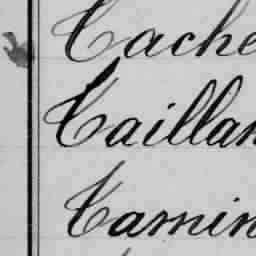 Cache
Caillan
Camin